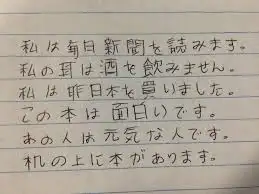 私は毎日新聞を読みます。
私の耳は酒を飲みません。
私は昨日本を買いました。
この本は面白いです。
あの人は元気な人です。
机の上に本があります。